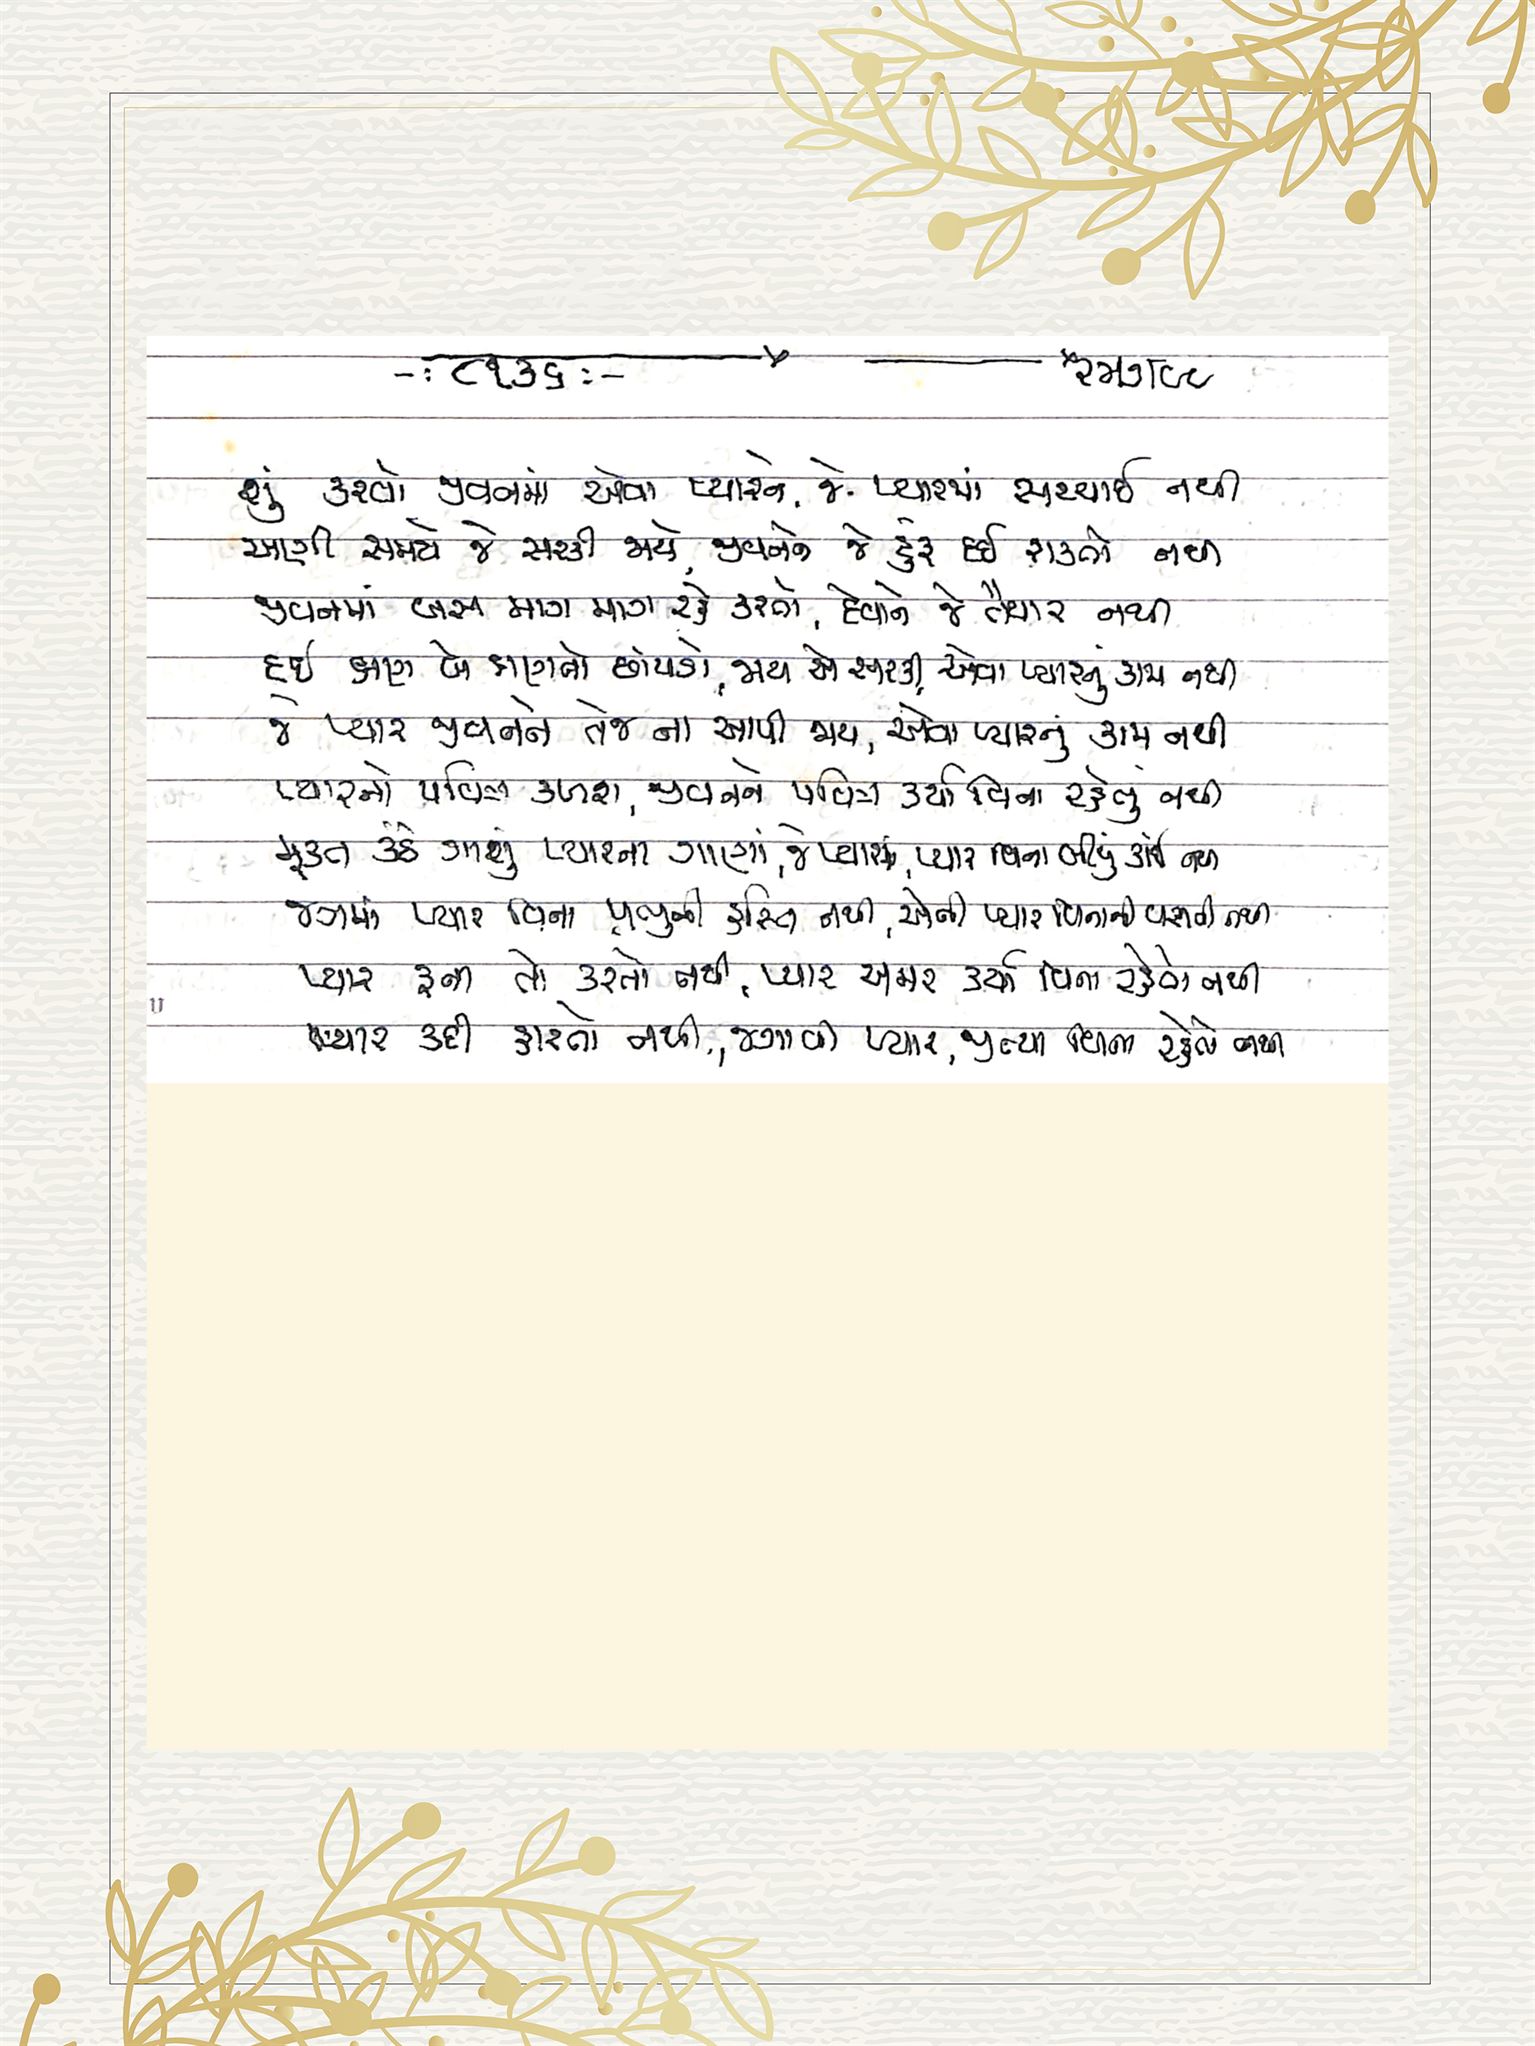 -: ૮૧૩૬ :-
શું કરવો જીવનમાં એવા પ્યારને, જે પ્યારમાં સચ્ચાઈ નથી
આણી સમયે જે સરકી જાયે, જીવનને જે હુંફ દઈ શકતો નથી
જીવનમાં બસ માગ માગ રહે કરતો, દેવાને જે તૈયાર નથી
દઈ ક્ષણ બે ક્ષણનો છાંયડો, જાય એ સરકી, એવા પ્યારનું કામ નથી
જે પ્યાર જીવનને તેજ ના આપી જાય, એવા પ્યારનું કામ નથી
પ્યારનો પવિત્ર કળશ, જીવનને પવિત્ર કર્યા વિના રહેવું નથી
મુક્ત કંઠે ગાશું પ્યારના ગાણાં, જે પ્યારમાં, પ્યાર વિના બીજું કાંઈ નથી
જગમાં પ્યાર વિના પ્રભુની હસ્તિ નથી, એની પ્યાર વિનાની વસ્તી નથી
પ્યાર ફના તો કરતો નથી, પ્યાર અમર કર્યા વિના રહેતો નથી
પ્યાર કદી હારતો નથી, જગાવી પ્યાર, જીત્યા વિના રહેતો નથી